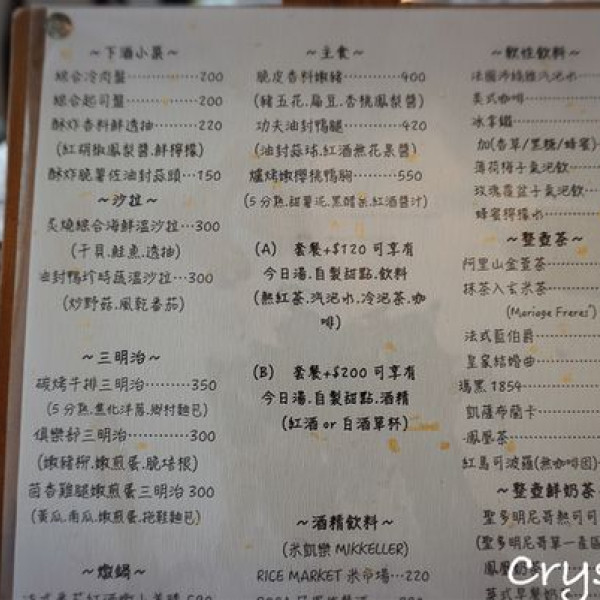 ～下酒小菜～
綜合冷肉盤⋯⋯⋯⋯200
綜合起司盤⋯⋯⋯⋯200
酥炸香料鮮透抽⋯⋯⋯220
(紅胡椒鳳梨醬.鮮檸檬)
酥炸脆薯佐油封蒜頭⋯150
～沙拉～
炙燒綜合海鮮溫沙拉⋯300
(干貝.鮭魚.透抽)
油封鴨珍時蔬溫沙拉⋯300
(炒野菇.風乾番茄)
～三明治～
碳烤牛排三明治⋯⋯⋯350
(5分熟.焦化洋蔥.鄉村麵包)
俱樂部三明治⋯⋯⋯300
(嫩豬柳.嫩煎蛋.脆培根)
茴香雞腿嫩煎蛋三明治 300
(黃瓜.南瓜.嫩煎蛋.拖鞋麵包)
～燉鍋～
～主食～
脆皮香料嫩豬⋯⋯⋯400
(豬五花.扁豆.杏桃鳳梨醬)
功夫油封鴨腿⋯⋯⋯420
(油封蒜球.紅酒無花果醬)
爐烤嫩櫻桃鴨胸⋯⋯⋯550
(5分熟.甜薯泥.黑醋栗.紅酒醬汁)
(A) 套餐+$120 可享有
今日湯.自製甜點.飲料
(熱紅茶.汽泡水.冷泡茶.咖
啡)
(B) 套餐+$200 可享有
今日湯.自製甜點.酒精
(紅酒 or 白酒單杯)
～酒精飲料～
(米凱樂 MIKKELLER)
RICE MARKET 米市場⋯220
～軟性飲料～
法國沛綠雅汽泡水⋯⋯
美式咖啡⋯⋯⋯⋯⋯
冰拿鐵⋯⋯⋯⋯⋯⋯
加(香草/黑糖/蜂蜜)
薄荷梅子氣泡飲⋯⋯⋯
玫瑰覆盆子氣泡飲⋯⋯
蜂蜜檸檬水⋯⋯⋯⋯
～整壺茶～
阿里山金萱茶⋯⋯⋯⋯
抹茶入玄米茶⋯⋯⋯⋯
(Mariage Freres')
法式藍伯爵⋯⋯⋯⋯
皇家結婚曲⋯⋯⋯⋯
瑪黑 1854⋯⋯⋯⋯⋯
凱薩布蘭卡⋯⋯⋯⋯
鳳凰茶⋯⋯⋯⋯⋯⋯
紅馬可波羅(無咖啡因)⋯
～整壺鮮奶茶～
聖多明尼哥熱可可
(聖多明尼哥單一產區
鳳凰奶茶⋯⋯
英式早餐奶茶
Crys